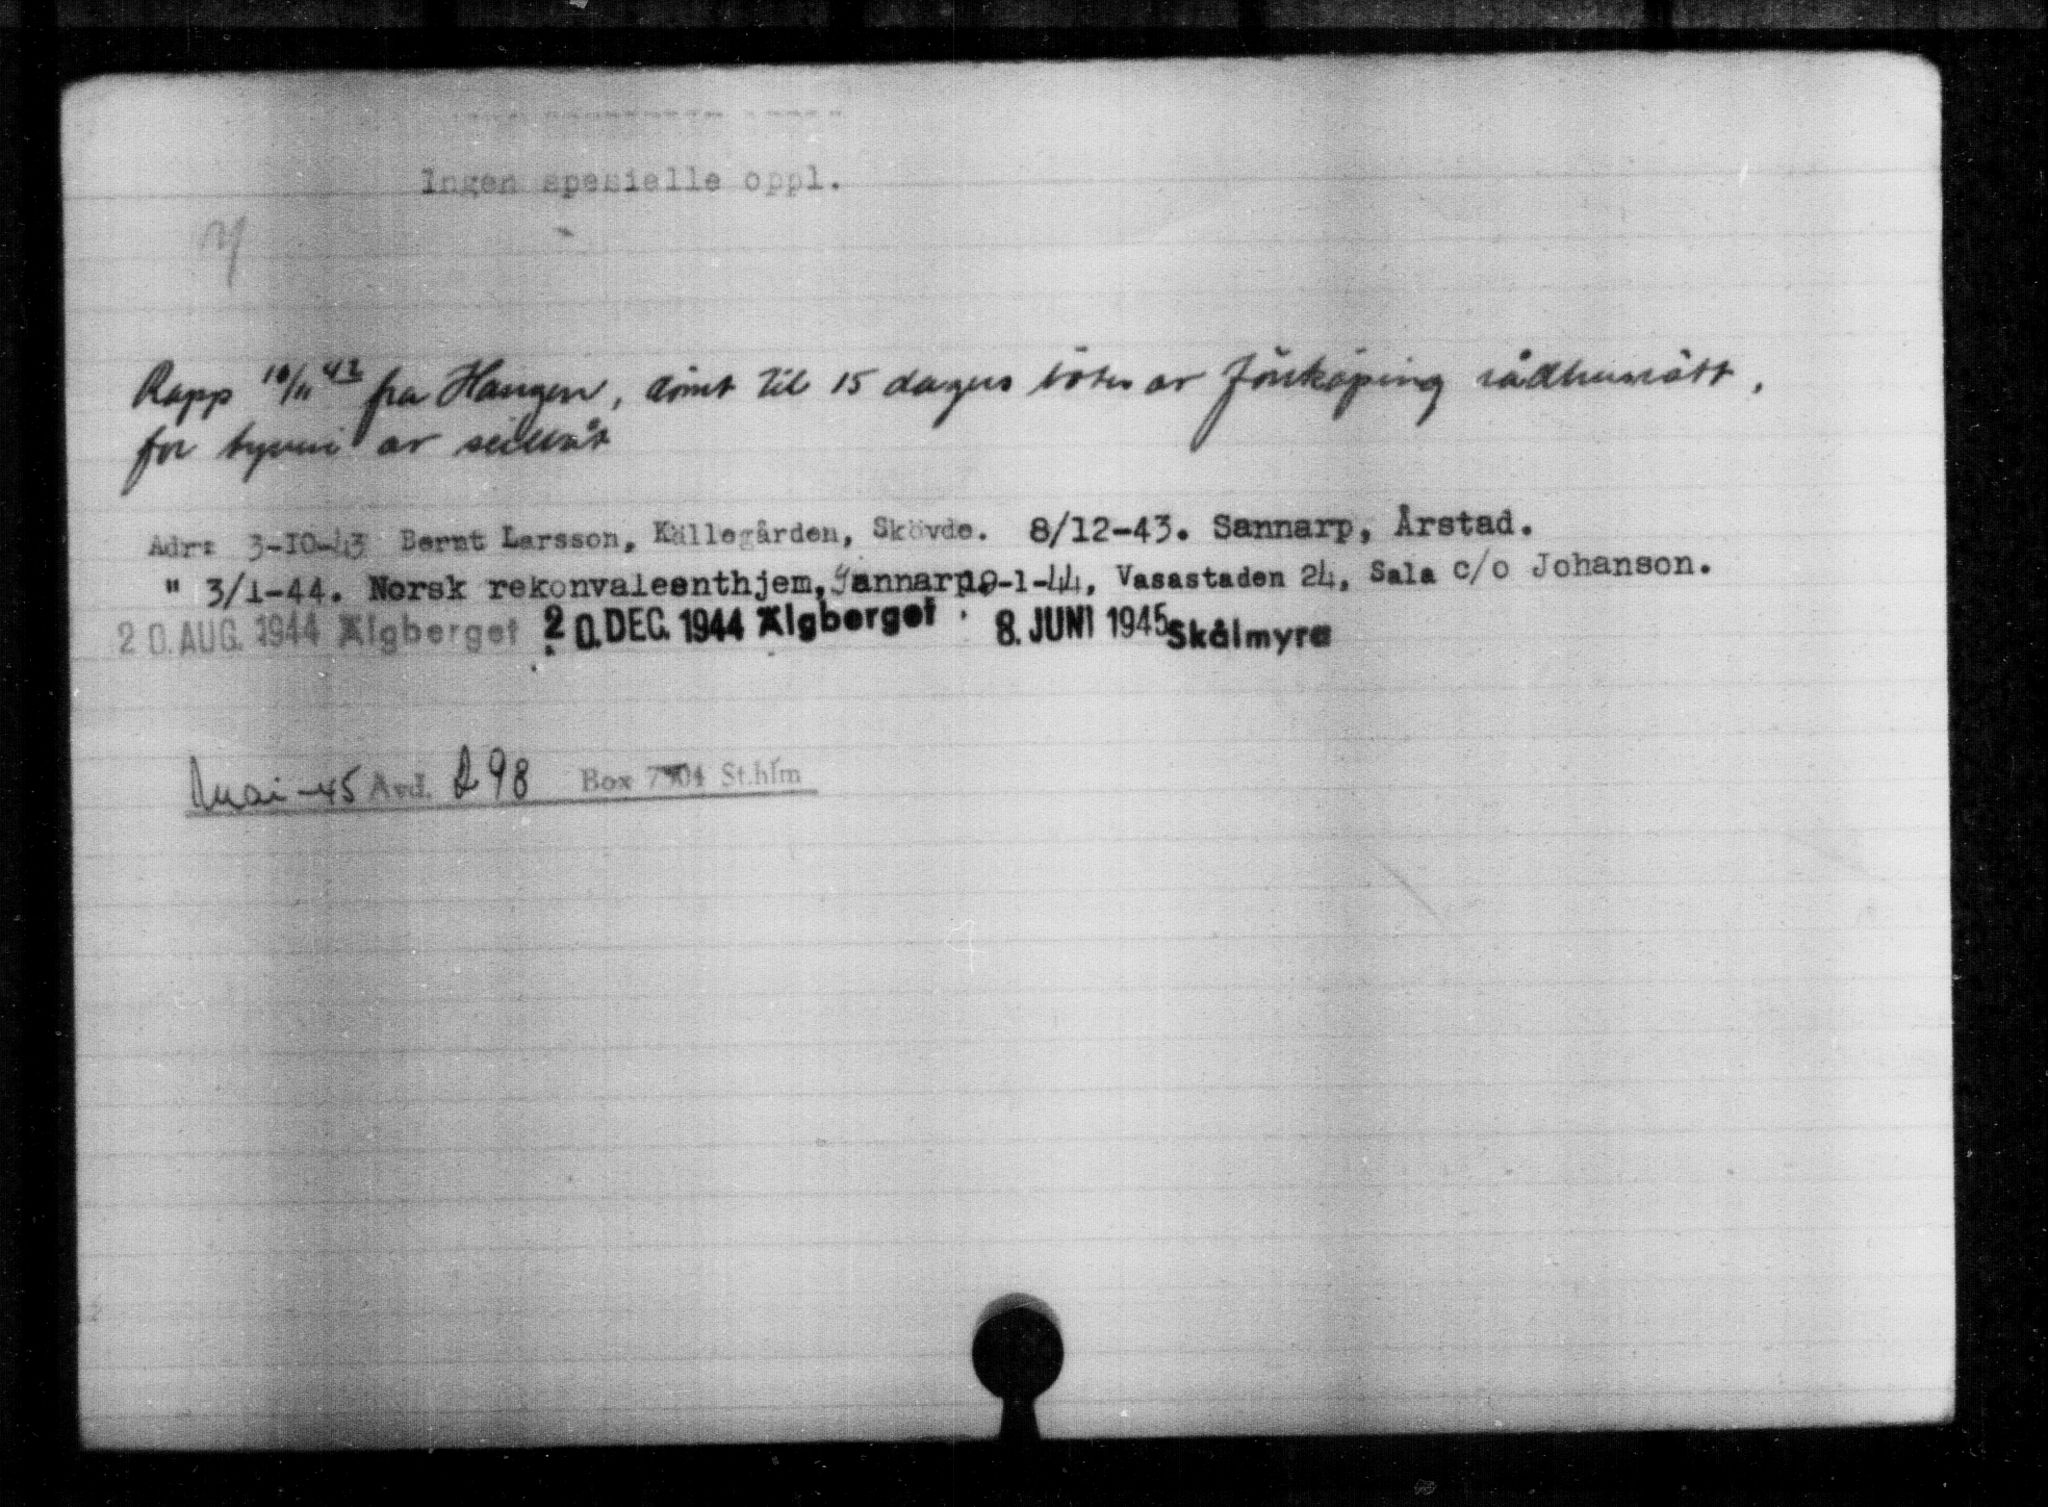 Ingen spesielle oppl.
Rapp 10/11 43 fra Haugen, dömt til 15 dagers böter av Jönköping rådhusrätt,
for tyveri av seilbåt
Adr: 3-10-43 Bernt Larsson, Källegården, Skövde. 8/12-43. Sannarp, Årstad.
" 3/1-44. Norsk rekonvalesenthjem, Sannarp. 19-1-44, Vasastaden 24, Sala c/o Johanson.
20. AUG. 1944 Älgberget 20. DEC. 1944 Älgberget . 8. JUNI 1945 Skålmyra
Mai-45 Avd. 298 Box 7904 St.hlm